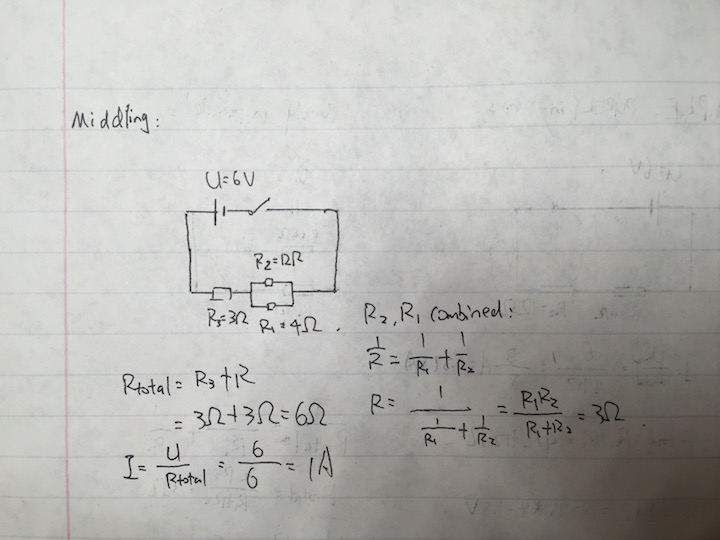 Middling:
U=6V
R₂=12Ω
R₃=3Ω
R₁=4Ω
R₂, R₁ combined:
1/R = 1/R₁ + 1/R₂
R = 1/(1/R₁ + 1/R₂) = R₁R₂/(R₁+R₂) = 3Ω
Rtotal = R₃+R
= 3Ω+3Ω=6Ω
I = U/Rtotal = 6/6 = 1A